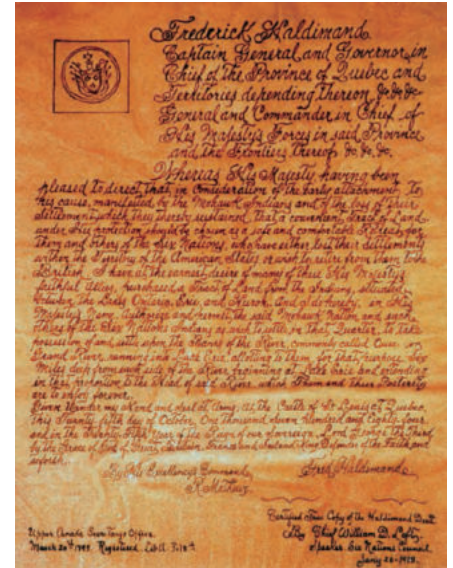 Frederick Haldimand
Captain General and Governor in
Chief of the Province of Quebec and
Territories depending thereon &c. &c. &c.
General and Commander in Chief of
His Majesty's Forces in said Province
and the Frontiers thereof &c. &c. &c.
Whereas His Majesty having been
pleased to direct that in consideration of the early attachment to
his cause, manifested by the Mohawk Indians and of the loss of their
settlement which they thereby sustained that a convenient tract of Land
under His protection should be chosen as a safe and comfortable Retreat for
them and others of the Six Nations, who have either lost their settlements
within the Territory of the American States or wish to retire from them to the
British I have at the earnest desire of many of these His Majesty's
faithful Allies, purchased a tract of Land from the Indians, situated
between the Lakes Ontario, Erie, and Huron, and I do hereby in His
Majesty's name, authorize and permit the said Mohawk Nation, and such
others of the Six Nations Indians as wish to settle in that Quarter, to take
possession of and settle upon the Banks of the River, commonly called Ouse or
Grand River, running into Lake Erie, allotting to them for that purpose Six
Miles deep from each side of the River beginning at Lake Erie and extending
in that proportion to the Head of said River, which Them and Their Posterity
are to enjoy forever.
Given Under my Hand and Seal at Arms, at the Castle of St Lewis at Quebec,
this Twenty-fifth day of October, One thousand seven Hundred and Eighty-four
and in the Twenty-fifth Year of the Reign of our Sovereign Lord George the Third
by the Grace of God of Great Britain, France and Ireland King Defender of the Faith and
so forth
By His Excellency's Command
Fred. Haldimand
R. Mathews
Certified True Copy of the Haldimand Deed
By Chief William D. Loft
Speaker Six Nations Council
Upper Canada Secretary's Office
March 20th 1795 Registered